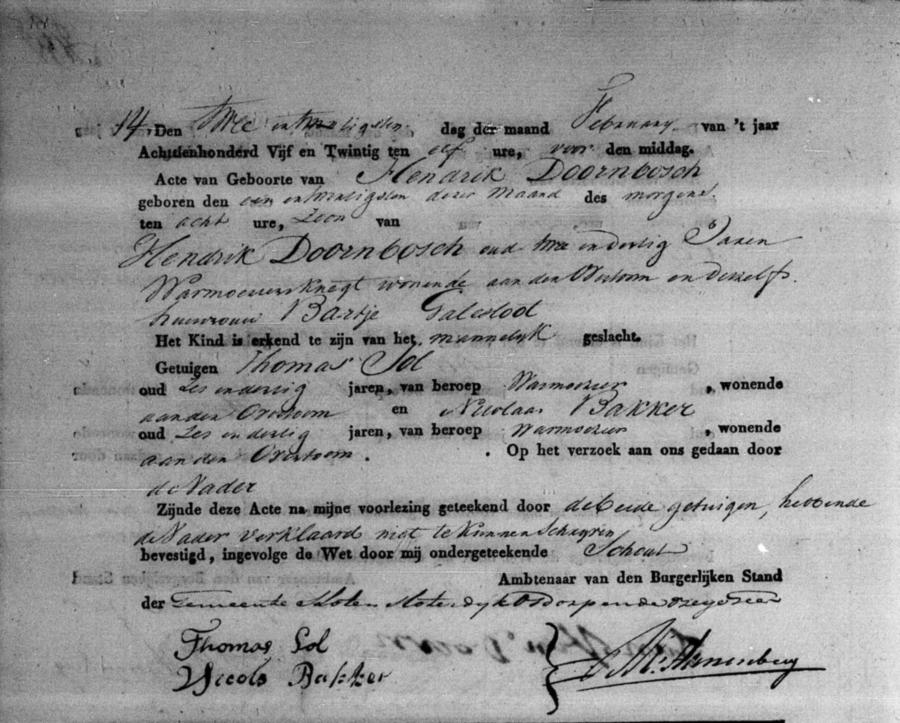 14, Den twee en twintigsten dag der maand February van 't jaar
Achttienhonderd Vijf en Twintig ten elf ure, voor den middag.
Acte van Geboorte van Hendrik Doornbosch
geboren den een en twintigsten dezer maand des morgens
ten acht ure, Zoon van
Hendrik Doornbosch oud twee en dertig Jaren
Warmoeziersknegt wonende aan den Overtoom en deszelfs
huisvrouw Bartje Galesloot
Het Kind is erkend te zijn van het mannelyk geslacht.
Getuigen Thomas Sol
oud Zes en dertig jaren, van beroep Warmoezier, wonende
aan den Overtoom en Nicolaas Bakker
oud Zes en dertig jaren, van beroep Warmoezier, wonende
aan den Overtoom. Op het verzoek aan ons gedaan door
de Vader
Zijnde deze Acte na mijne voorlezing geteekend door de beide getuigen, hebbende
de Vader verklaard niet te kunnen Schryven
bevestigd, ingevolge de Wet door mij ondergeteekende Schout
Ambtenaar van den Burgerlijken Stand
der Gemeente Sloten Sloterdyk Osdorp en de Vrye Geer
Thomas Sol
Nicols Bakker